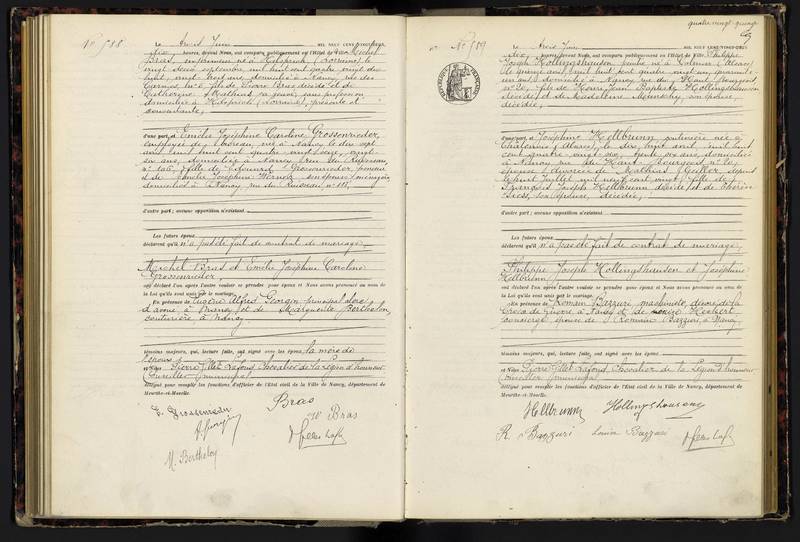 N° 588
Le trois Juin MIL NEUF CENT VINGT-DEUX,
dix heures, devant Nous, ont comparu publiquement en l'Hôtel de Ville Michel
Bras, né à Hilsprich (Lorraine) le
vingt deux septembre mil huit cent quatre vingt dix
huit, vingt trois ans, domicilié à Nancy, rue des
n° 6, fils de Pierre Bras décédé et de
Catherine Mathieu sa veuve, sans profession
domiciliée à Hilsprich (Lorraine), présente et
consentante,
d'une part et Emilie Joséphine Caroline Grossenrieder,
employée de bureau, née à Nancy le dix sept
avril mil huit cent quatre vingt seize, vingt
six ans, domiciliée à Nancy, rue du Ruisseau,
n° 106, fille de Edouard Grossenrieder,
et de Emilie Joséphine son épouse, ménagère,
domiciliés à Nancy, rue du Ruisseau n°
d'autre part ; aucune opposition n'existant
Les futurs époux
déclarent qu'il n'a pas été fait de contrat de mariage,
Michel Bras et Emilie Joséphine Caroline
Grossenrieder,
ont déclaré l'un après l'autre vouloir se prendre pour époux et Nous avons prononcé au nom de
la Loi qu'ils sont unis par le mariage.
En présence de Eugène Alfred Georgin principal clerc
d'avoué à Nancy et de Marguerite Berthelon,
couturière à Nancy,
témoins majeurs, qui, lecture faite, ont signé avec les époux la mère de
l'époux
et Nous Pierre Gillet-Lafond Chevalier de la Légion d'honneur
Conseiller municipal
délégué pour remplir les fonctions d'officier de l'Etat civil de la Ville de Nancy, département de
Meurthe-et-Moselle.
E. Grossenrieder
Bras
Bras
M. Berthelon
quatre vingt quinze
N° 589
Le trois Juin MIL NEUF CENT VINGT-DEUX
dix heures, devant Nous, ont comparu publiquement en l'Hôtel de Ville, Philippe
Joseph Hollingshausen, peintre né à Colmar (Alsace)
le quinze avril mil huit cent quatre vingt un, quarante
un ans, domicilié à Nancy, rue du Haut Bourgeois
n° 20, fils de Henri Jean Baptiste Hollingshausen
décédé et de Madeleine son épouse,
décédée,
d'une part et Joséphine Hellbrunn, cuisinière née à
(Alsace), le dix sept avril mil huit
cent quatre vingt six, trente six ans, domiciliée
à Nancy rue du Haut Bourgeois n° 20,
épouse divorcée de Mathias depuis
le huit Juillet mil neuf cent vingt, fille de
François Joseph Hellbrunn décédé et de Thérèse
son épouse, décédée,
d'autre part ; aucune opposition n'existant
Les futurs époux
déclarent qu'il n'a pas été fait de contrat de mariage,
Philippe Joseph Hollingshausen et Joséphine
Hellbrunn,
ont déclaré l'un après l'autre vouloir se prendre pour époux et Nous avons prononcé au nom de
la Loi qu'ils sont unis par le mariage.
En présence de Romain Bazzuri, machiniste, décoré de la
Croix de Guerre à Nancy et de Louise Herbert,
concierge épouse de Romain Bazzuri, à Nancy,
témoins majeurs, qui, lecture faite, ont signé avec les époux
et Nous Pierre Gillet-Lafond Chevalier de la Légion d'honneur
Conseiller municipal
délégué pour remplir les fonctions d'officier de l'Etat civil de la Ville de Nancy, département de
Meurthe-et-Moselle.
Hellbrunn
Hollingshausen
R. Bazzuri
Louise Bazzuri